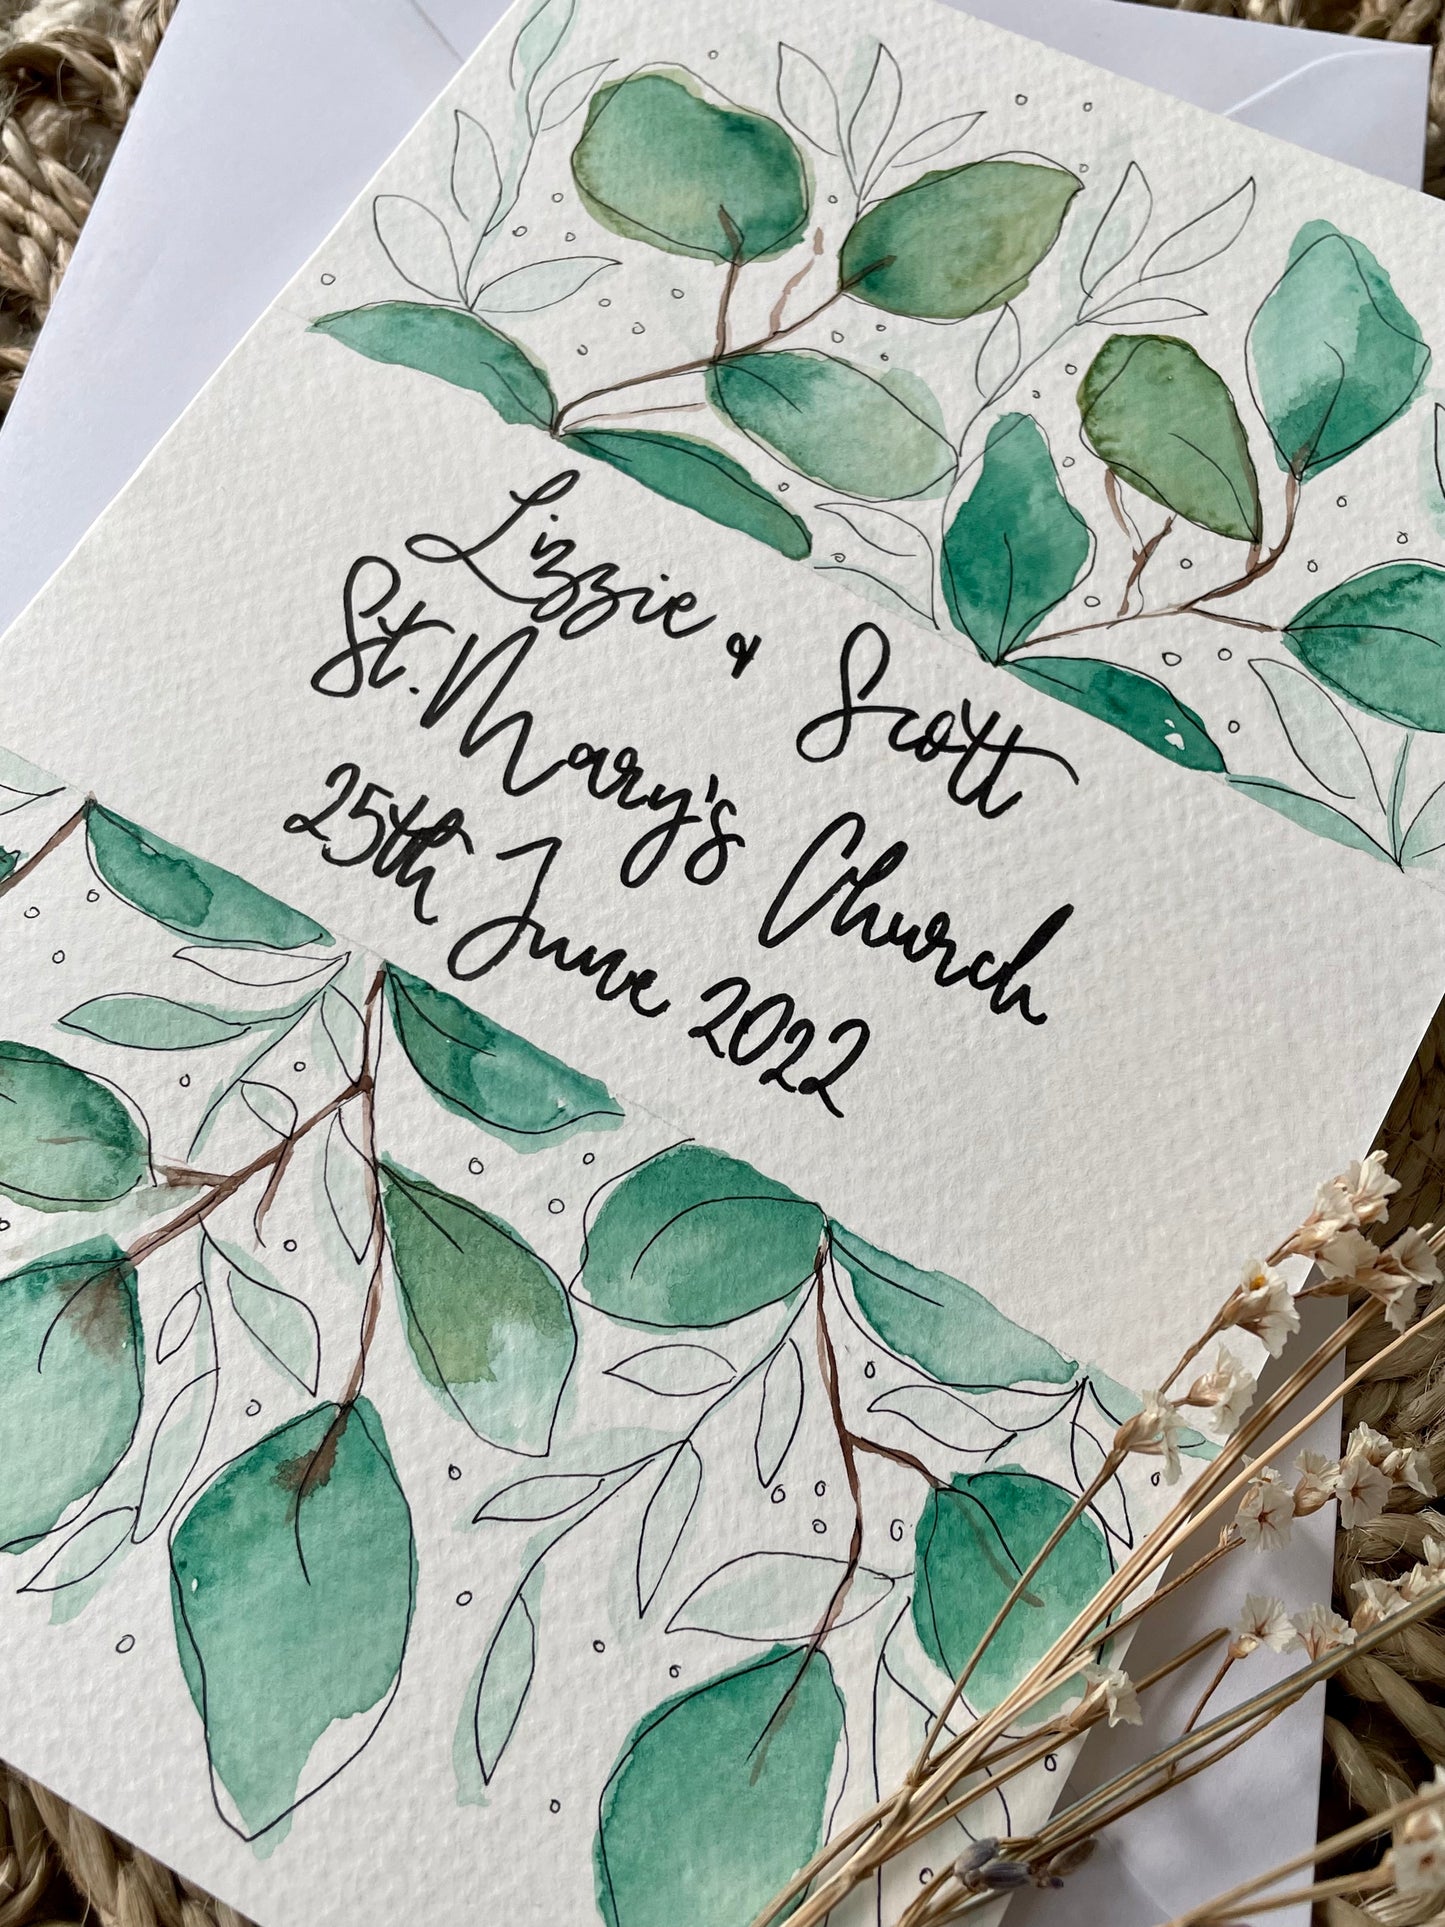 Lizzie & Scott
St. Mary's Church
25th June 2022